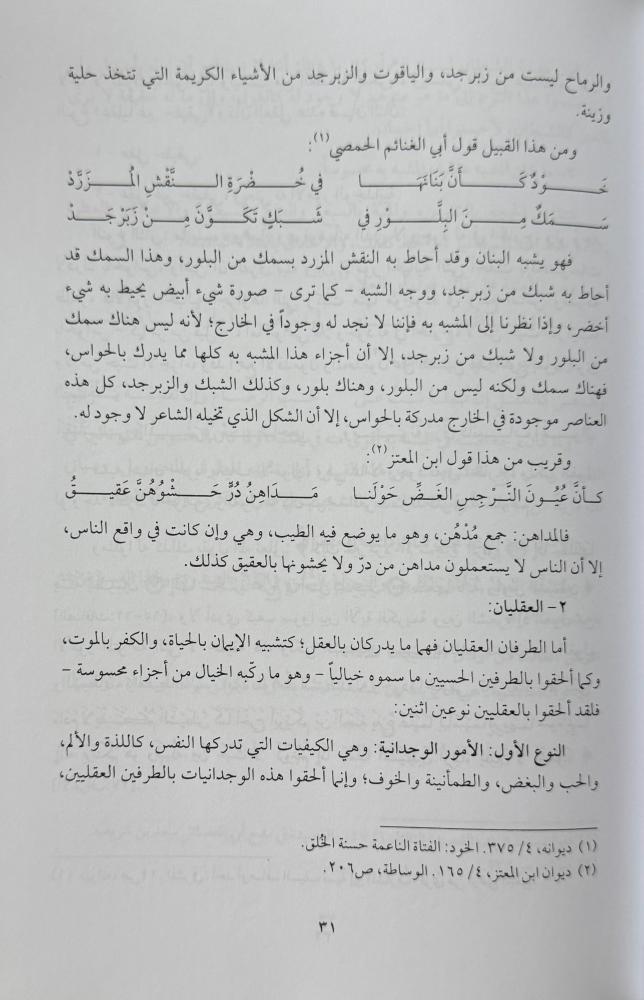 والرماح ليست من زبرجد، والياقوت والزبرجد من الأشياء الكريمة التي تتخذ حلية
وزينة.
ومن هذا القبيل قول أبي الغنائم الحمصي(١):
خَــوْدٌ كَــأَنَّ بَنَانَهَـا في خُـضْرَةِ الـنَّقْشِ المُـزَرَّدْ
سَـمَكٌ مِـنَ البِلَّـوْرِ في شَـبَكٍ تَكَوَّنَ مِـنْ زَبَرْجَـدْ
فهو يشبه البنان وقد أحاط به النقش المزرد بسمك من البلور، وهذا السمك قد
أحاط به شبك من زبرجد، ووجه الشبه - كما ترى - صورة شيء أبيض يحيط به شيء
أخضر، وإذا نظرنا إلى المشبه به فإننا لا نجد له وجوداً في الخارج؛ لأنه ليس هناك سمك
من البلور ولا شبك من زبرجد، إلا أن أجزاء هذا المشبه به كلها مما يدرك بالحواس،
فهناك سمك ولكنه ليس من البلور، وهناك بلور، وكذلك الشبك والزبرجد، كل هذه
العناصر موجودة في الخارج مدركة بالحواس، إلا أن الشكل الذي تخيله الشاعر لا وجود له.
وقريب من هذا قول ابن المعتز(٢):
كـأنَّ عُيُـونَ النَّـرْجِسِ الغَـضِّ حَوْلَنـا مَـدَاهِنُ دُرٍّ حَـشْوُهُنَّ عَقيـقُ
فالمداهن: جمع مُدْهُن، وهو ما يوضع فيه الطيب، وهي وإن كانت في واقع الناس،
إلا أن الناس لا يستعملون مداهن من درّ ولا يحشونها بالعقيق كذلك.
٢- العقليان:
أما الطرفان العقليان فهما ما يدركان بالعقل؛ كتشبيه الإيمان بالحياة، والكفر بالموت،
وكما ألحقوا بالطرفين الحسيين ما سموه خيالياً - وهو ما ركّبه الخيال من أجزاء محسوسة -
فلقد ألحقوا بالعقليين نوعين اثنين:
النوع الأول: الأمور الوجدانية: وهي الكيفيات التي تدركها النفس، كاللذة والألم،
والحب والبغض، والطمأنينة والخوف؛ وإنما ألحقوا هذه الوجدانيات بالطرفين العقليين،
(١) ديوانه، ٤/ ٣٧٥. الخود: الفتاة الناعمة حسنة الخُلق.
(٢) ديوان ابن المعتز، ٤/ ١٦٥. الوساطة، ص٢٠٦.
٣١